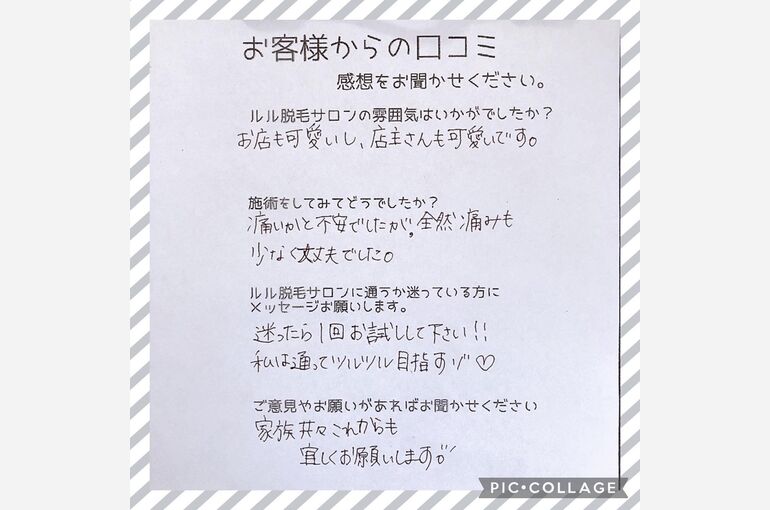 お客様からの口コミ
感想をお聞かせください。
ルル脱毛サロンの雰囲気はいかがでしたか？
お店も可愛いし、店主さんも可愛いです。
施術をしてみてどうでしたか？
痛いかと不安でしたが、全然痛みも
少なく大丈夫でした。
ルル脱毛サロンに通うか迷っている方に
メッセージお願いします。
迷ったら1回お試しして下さい!!
私は通ってツルツル目指すゾ♡
ご意見やお願いがあればお聞かせください
家族共々これからも
宜しくお願いします
PIC•COLLAGE